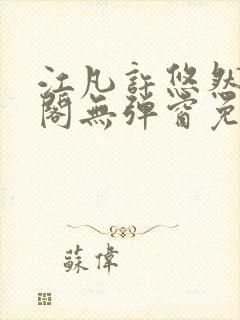 江凡許悠然
閣無彈窗免
蘇偉